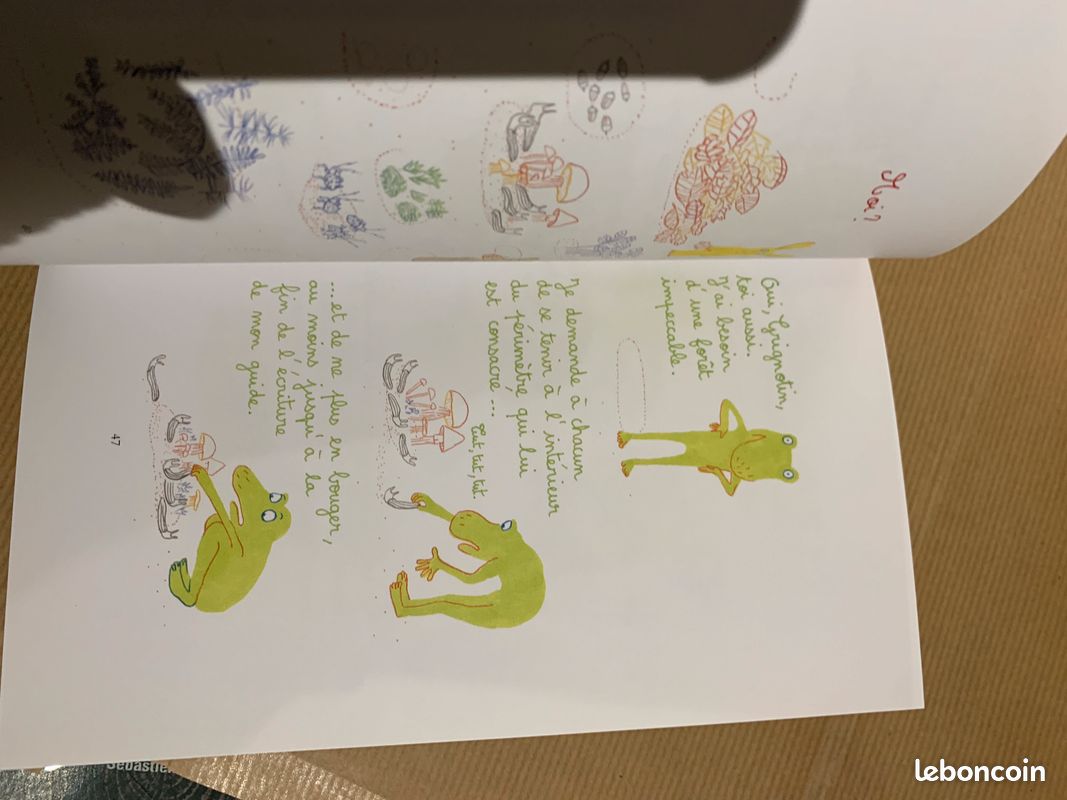 Moi?
Oui, Grignotin,
toi aussi.
J'ai besoin
d'une forêt
impeccable.
Je demande à chacun
de se tenir à l'intérieur
du périmètre qui lui
est consacré...
Tut, tut, tut.
... et de ne plus en bouger,
au moins jusqu'à la
fin de l'écriture
de mon guide.
47
leboncoin